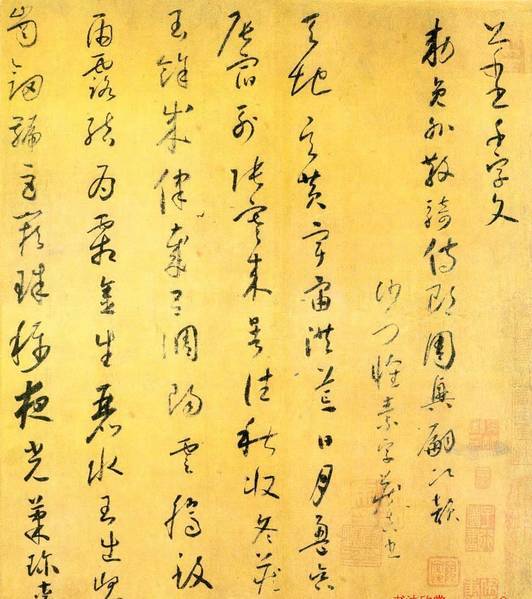 千字文
勅員外散騎侍郎周興嗣次韻
沙門懷素字藏真
天地玄黃宇宙洪荒日月盈昃
辰宿列張寒來暑往秋收冬藏
閏餘成律歲呂調陽雲騰致
雨露結為霜金生麗水玉出崑
崗劍號巨闕珠稱夜光菓珍李